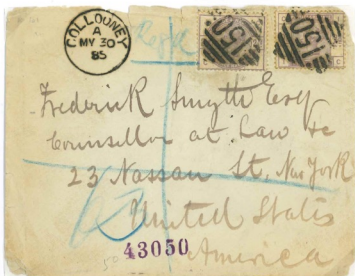 COLLOONEY
A
MY 30
85
150
150
Regd
Frederick Smyth Esq
Counsellor at Law &c
23 Nassau St, New York
United States
America
43050